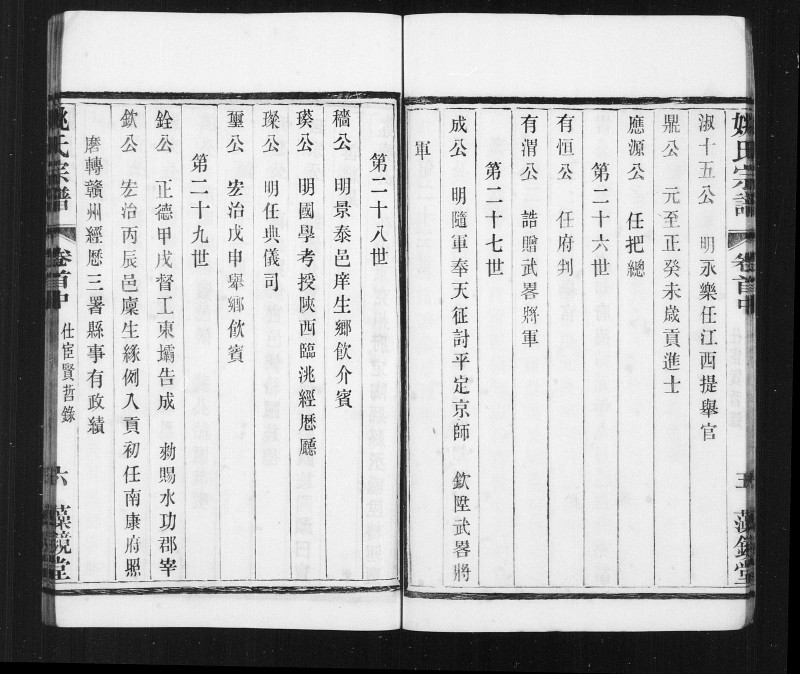 姚氏宗譜
卷首中
五
淑十五公　明永樂任江西提舉官
鼎公　元至正癸未歲貢進士
應源公　任把總
第二十六世
有恒公　任府判
有渭公　誥贈武畧將軍
第二十七世
成公　明隨軍奉天征討平定京師　欽陞武畧將
軍
第二十八世
穡公　明景泰邑庠生鄉飲介賓
瑛公　明國學考授陝西臨洮經歷廳
璨公　明任典儀司
璽公　宏治戊申舉鄉飲賓
第二十九世
銓公　正德甲戌督工東壩告成　勑賜水功郡宰
欽公　宏治丙辰邑廩生緣例入貢初任南康府照
磨轉贛州經歷三署縣事有政績
姚氏宗譜
卷首中
仕宦賢哲錄
六
藻鏡堂